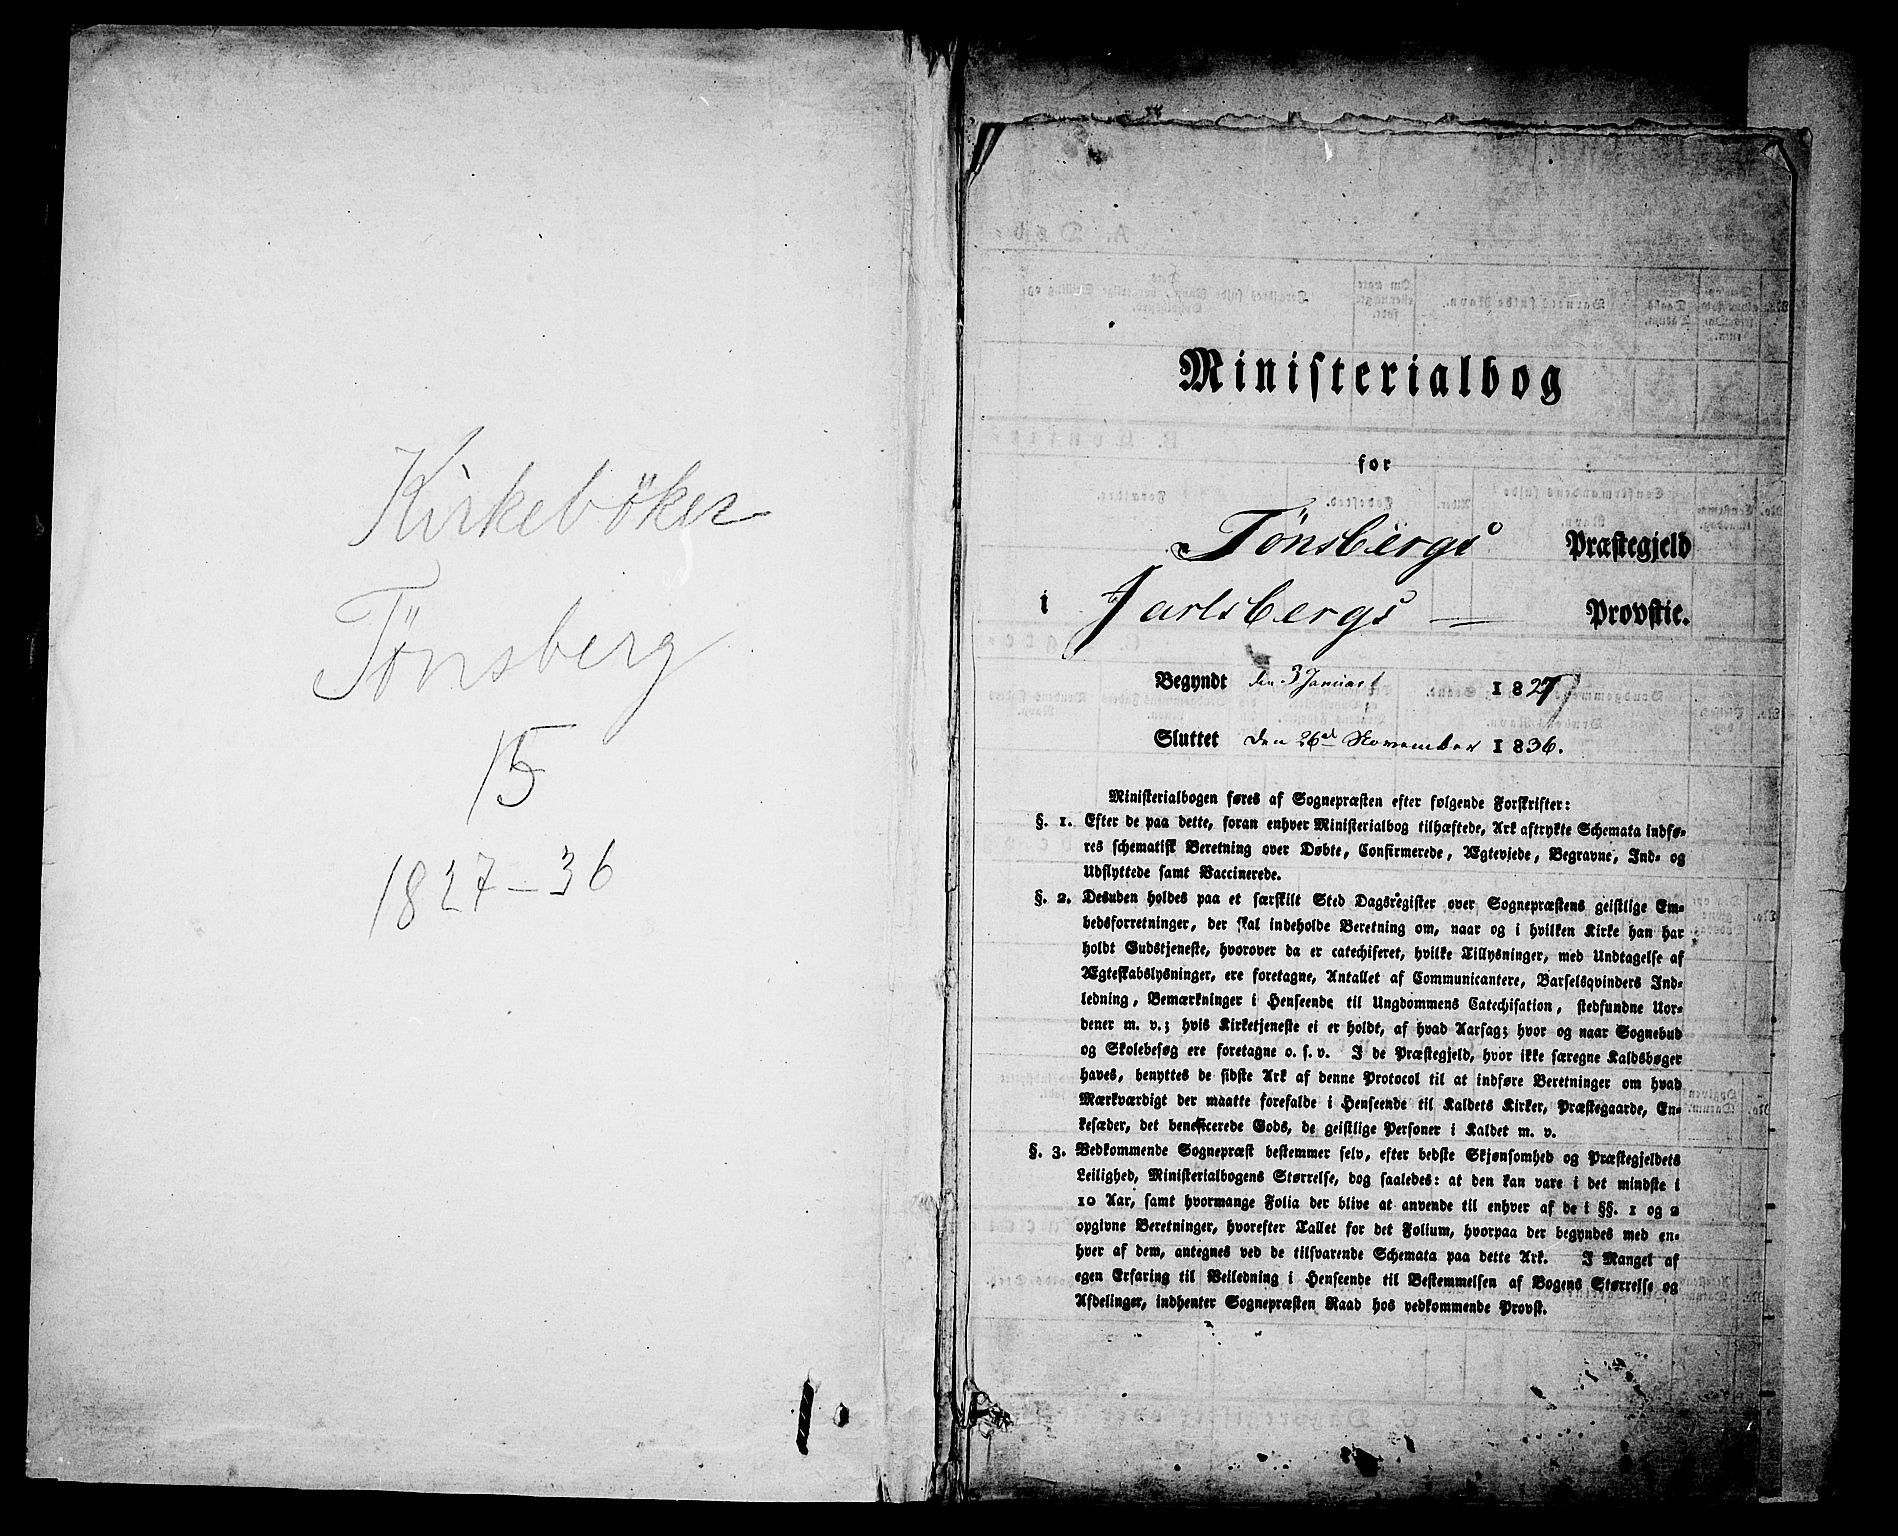 Kirkeböker
Tönsberg
15
1827-36
Ministerialbog
for
Tønsbergs Præstegjeld
i Jarlsbergs — Provstie.
Begyndt den 3 Januari 1827
Sluttet den 26de November 1836.
Ministerialbogen føres af Sognepræsten efter følgende Forskrifter:
§. 1. Efter de paa dette, foran enhver Ministerialbog tilhæftede, Ark aftrykte Schemata indfø-
res schematisk Beretning over Døbte, Confirmerede, Ægteviede, Begravne, Ind- og
Udflyttede samt Vaccinerede.
§. 2. Desuden holdes paa et særskilt Sted Dagsregister over Sognepræstens geistlige Em-
bedsforretninger, der skal indeholde Beretning om, naar og i hvilken Kirke han har
holdt Gudstjeneste, hvorover da er catechiseret, hvilke Tillysninger, med Undtagelse af
Ægteskabslysninger, ere foretagne, Antallet af Communicantere, Barselsqvinders Ind-
ledning, Bemærkninger i Henseende til Ungdommens Catechisation, stedfundne Uor-
dener m. v.; hvis Kirketjeneste ei er holdt, af hvad Aarsag; hvor og naar Sognebud
og Skolebesøg ere foretagne o. s. v. I de Præstegjeld, hvor ikke særegne Kaldsbøger
haves, benyttes de sidste Ark af denne Protocol til at indføre Beretninger om hvad
Mærkværdigt der maatte forefalde i Henseende til Kaldets Kirker, Præstegaarde, En-
kesæder, det beneficerede Gods, de geistlige Personer i Kaldet m. v.
§. 3. Vedkommende Sognepræst bestemmer selv, efter bedste Skjønsomhed og Præstegjeldets
Leilighed, Ministerialbogens Størrelse, dog saaledes: at den kan vare i det mindste i
10 Aar, samt hvormange Folia der blive at anvende til enhver af de i §§. 1 og 2
opgivne Beretninger, hvorefter Tallet for det Folium, hvorpaa der begyndes med en-
hver af dem, antegnes ved de tilsvarende Schemata paa dette Ark. I Mangel af
egen Erfaring til Veiledning i Henseende til Bestemmelsen af Bogens Størrelse og
Afdelinger, indhenter Sognepræsten Raad hos vedkommende Provst.